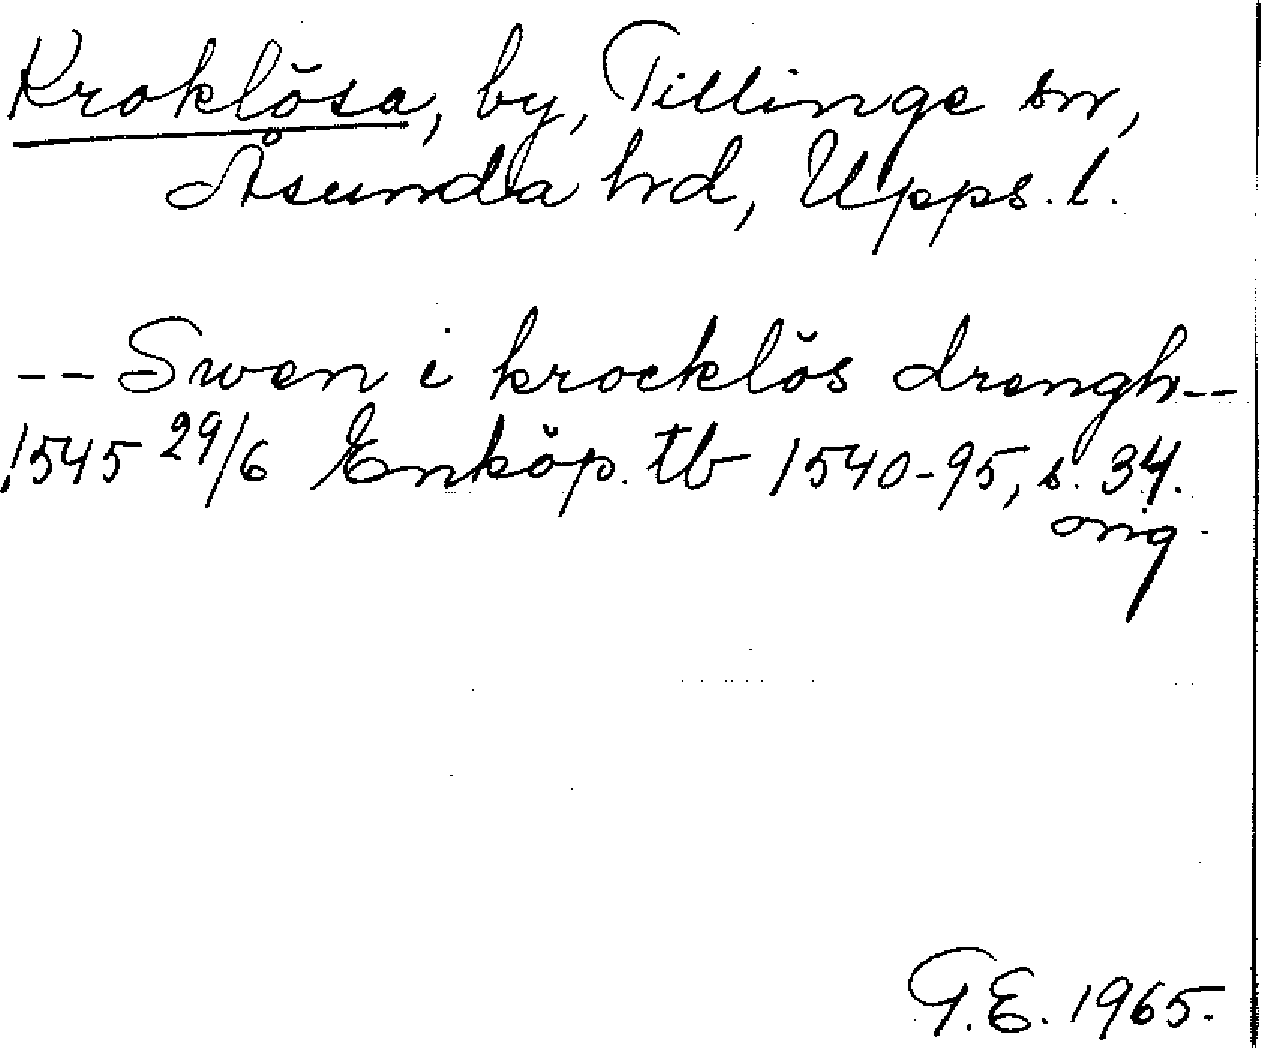 Kroklösa, by, Tillinge sn,
Åsunda hd, Upps. l.
-- Swen i krocklös drengh --
1545 29/6 Enköp. tb 1540-95, s. 34.
orig.
G.E. 1965.